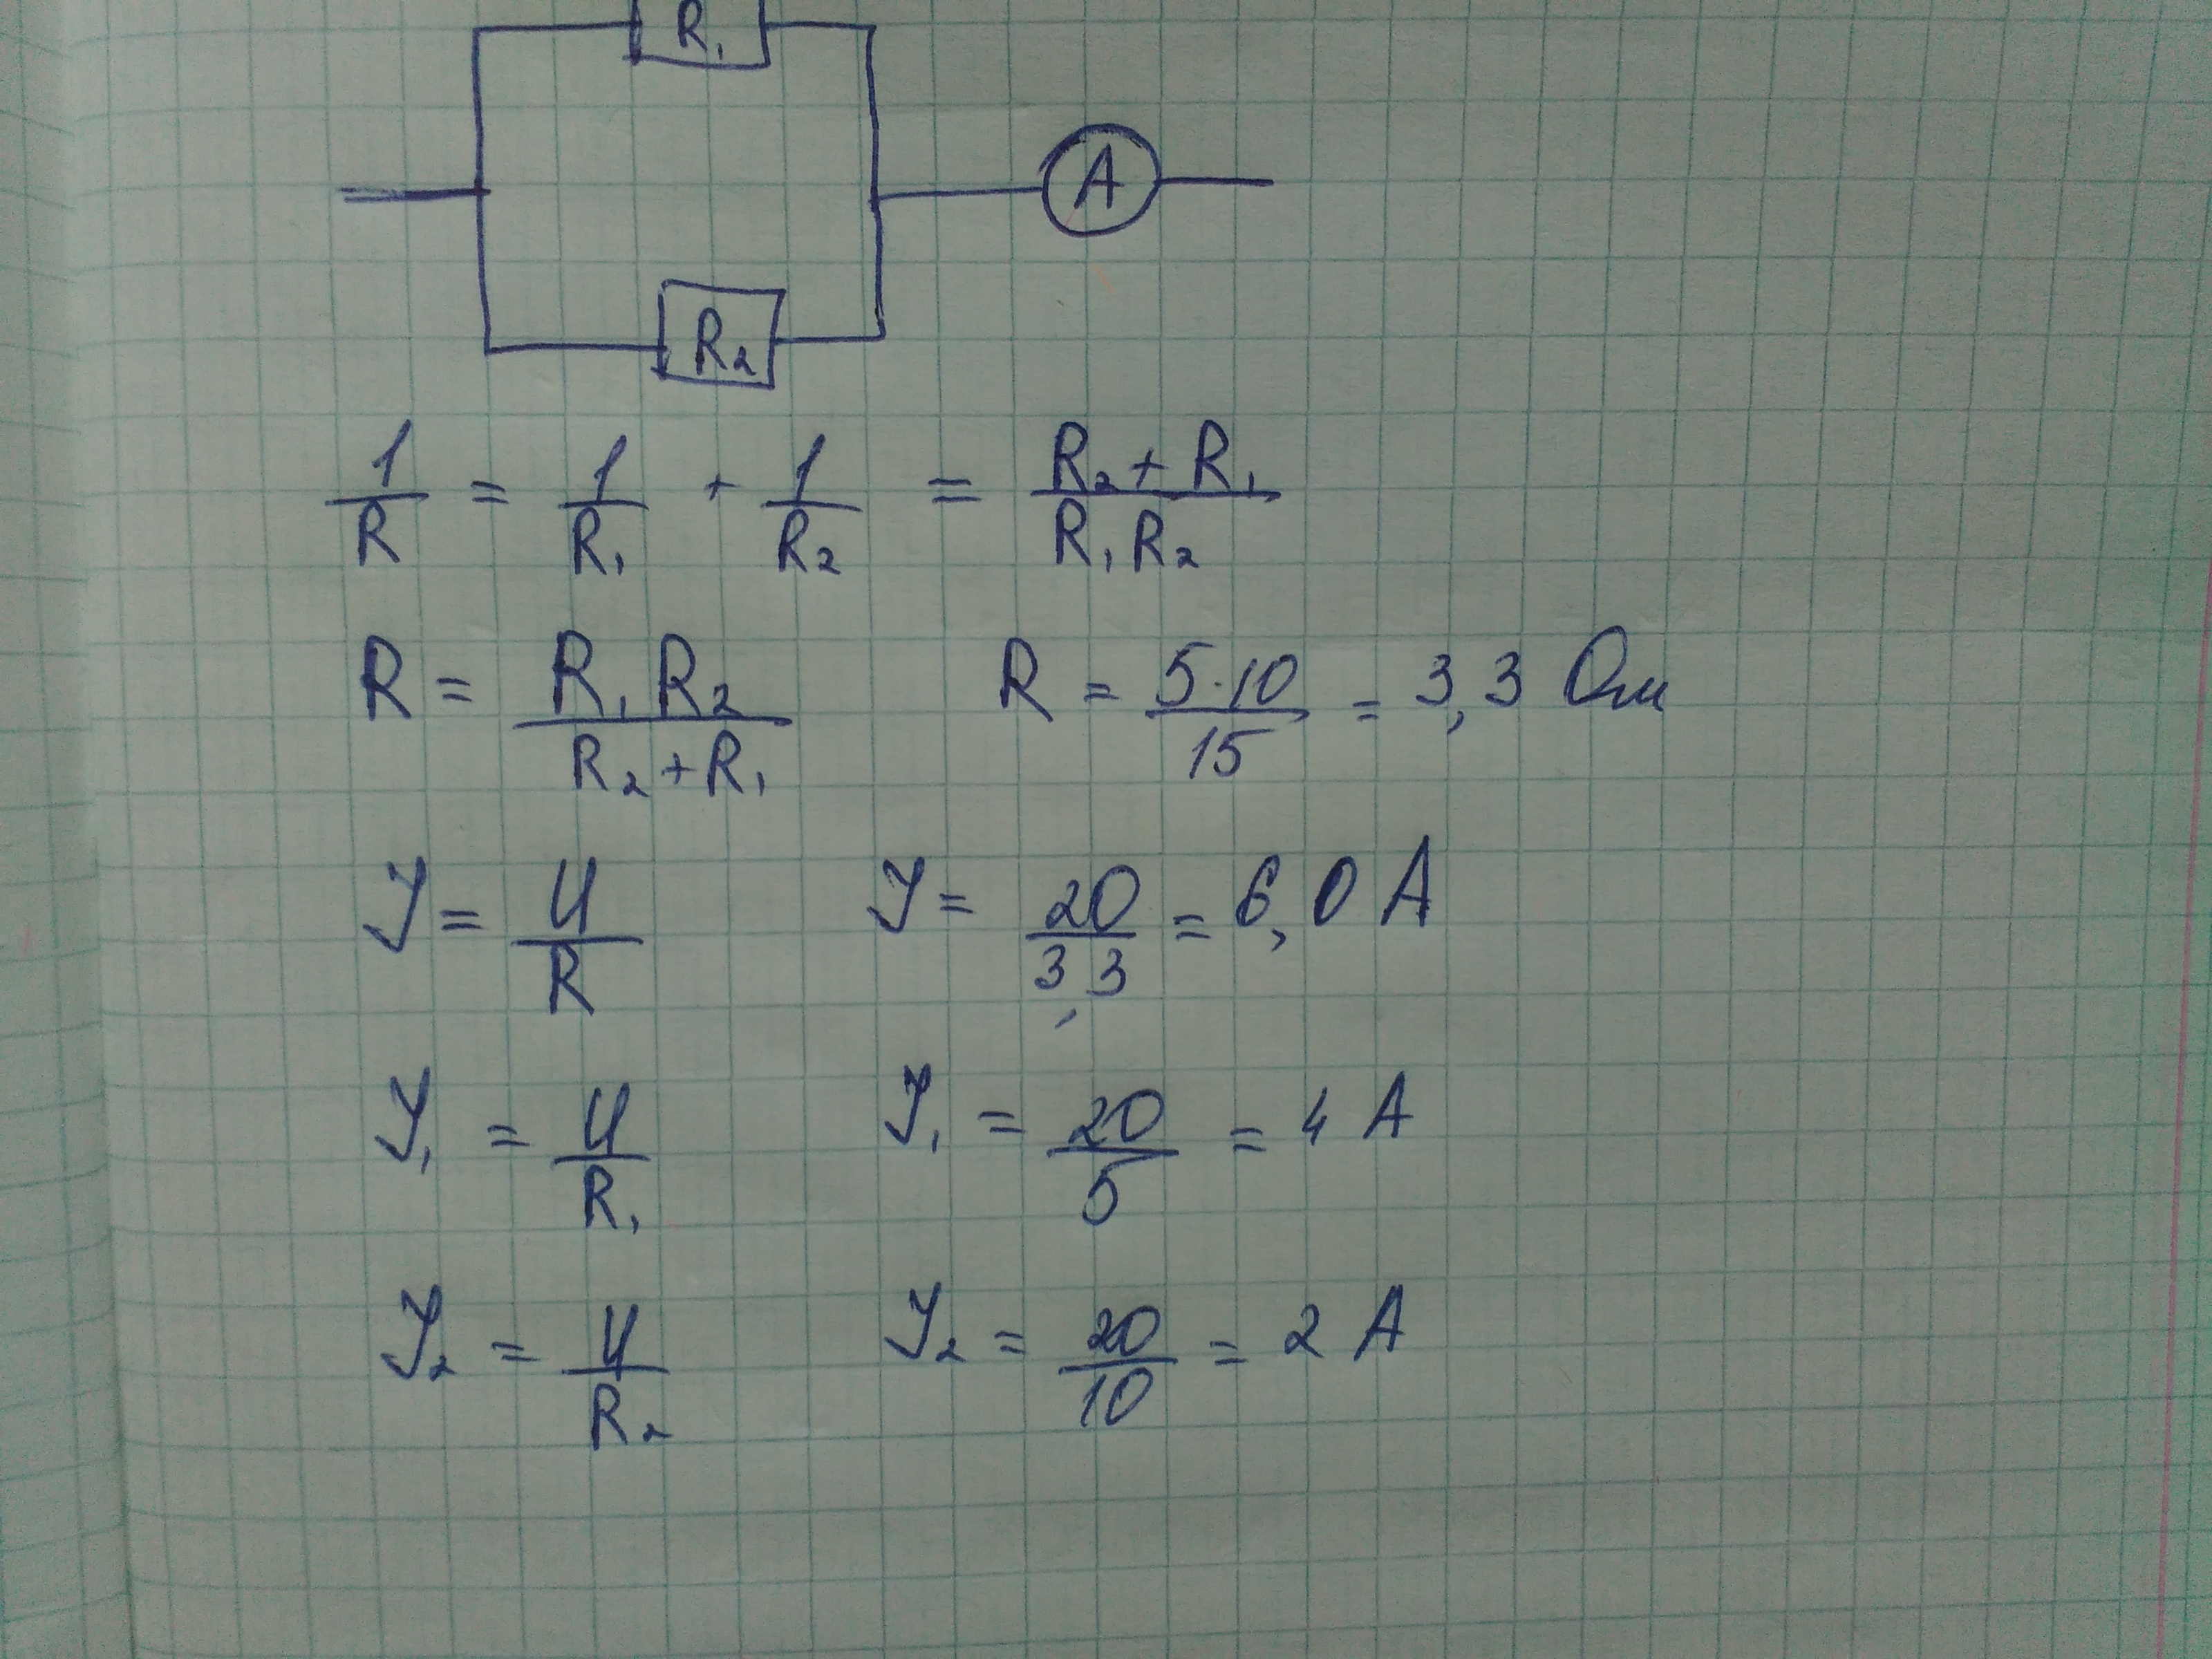 R₁
A
R₂
1/R = 1/R₁ + 1/R₂ = (R₂ + R₁)/(R₁ R₂)
R = (R₁ R₂)/(R₂ + R₁) R = (5·10)/15 = 3,3 Ом
I = U/R I = 20/3,3 = 6,0 А
I₁ = U/R₁ I₁ = 20/5 = 4 А
I₂ = U/R₂ I₂ = 20/10 = 2 А